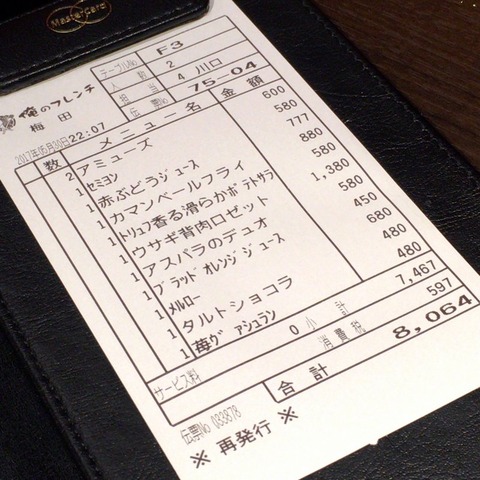 MasterCard
俺のフレンチ
梅田
テーブルNo F3
人数 2
担当 4 川口
伝票No 75-04
2017年05月30日22:07
数 メニュー名 金額
2 アミューズ 600
1 セミヨン 580
1 赤ぶどうジュース 777
1 カマンベールフライ 880
1 トリュフ香る滑らかポテトサラ 580
1 ウサギ背肉ロゼット 1,380
1 アスパラのデュオ 580
1 ブラッドオレンジジュース 450
1 メルロー 680
1 タルトショコラ 480
1 苺ヴァシュラン 480
サービス料 0 小計 7,467
消費税 597
合計 8,064
伝票No 033878
※ 再発行 ※